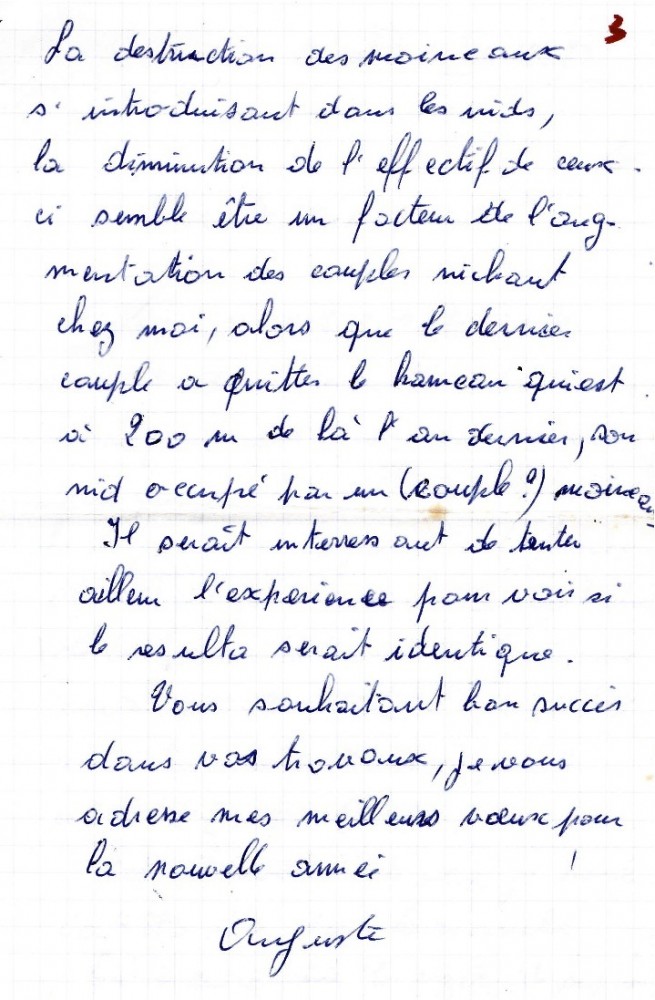 3
La destruction des moineaux
s'introduisant dans les nids,
la diminution de l'effectif de ceux-
ci semble être un facteur de l'aug-
mentation des couples nichant
chez moi, alors que le dernier
couple a quitter le hameau qui est
à 200 m de là l'an dernier, son
nid occupé par un (couple ?) moineau
Il serait interressant de tenter
ailleur l'experience pour voir si
le resulta serait identique.
Vous souhaitant bon succès
dans vos travaux, je vous
adresse mes meilleurs vœux pour
la nouvelle année !
Auguste